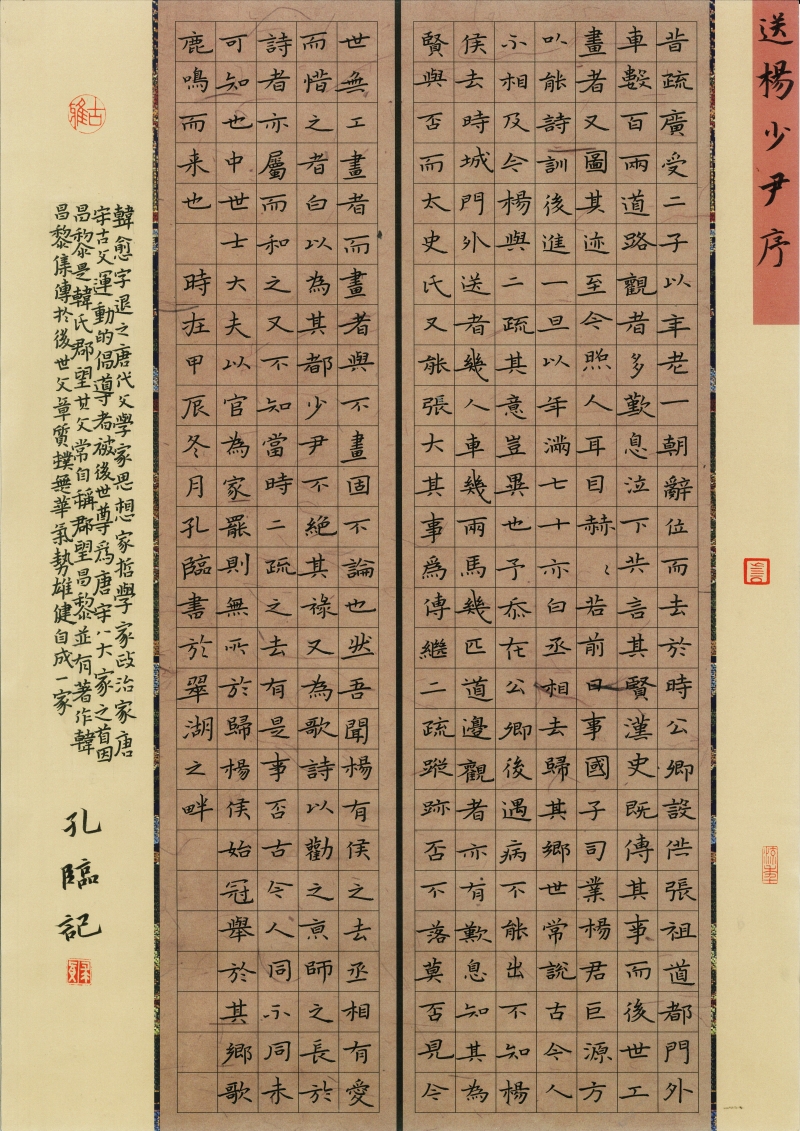 送楊少尹序
昔疏廣受二子以年老一朝辭位而去於時公卿設供張祖道都門外
車數百兩道路觀者多歎息泣下共言其賢漢史既傳其事而後世工
畫者又圖其迹至今照人耳目赫〻若前日事國子司業楊君巨源方
以能詩訓後進一旦以年滿七十亦白丞相去歸其鄉世常說古今人
不相及今楊與二疏其意豈異也予忝在公卿後遇病不能出不知楊
侯去時城門外送者幾人車幾兩馬幾匹道邊觀者亦有歎息知其為
賢與否而太史氏又能張大其事為傳繼二疏蹤跡否不落莫否見今
世無工畫者而畫者與不畫固不論也然吾聞楊有侯之去丞相有愛
而惜之者白以為其都少尹不絕其祿又為歌詩以勸之京師之長於
詩者亦屬而和之又不知當時二疏之去有是事否古今人同不同未
可知也中世士大夫以官為家罷則無所於歸楊侯始冠舉於其鄉歌
鹿鳴而来也 時在甲辰冬月孔臨書於翠湖之畔
古雅
韓愈字退之唐代文學家思想家哲學家政治家唐
宋古文運動的倡導者被後世尊為唐宋八大家之首因
昌黎是韓氏郡望其父常自稱郡望昌黎並有著作韓
昌黎集傳於後世文章質撲無華氣勢雄健自成一家
孔臨記